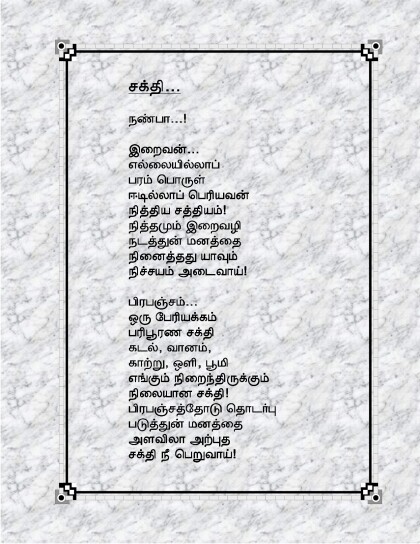 சக்தி...
நண்பா...!
இறைவன்...
எல்லையில்லாப்
பரம் பொருள்
ஈடில்லாப் பெரியவன்
நித்திய சத்தியம்!
நித்தமும் இறைவழி
நடத்துன் மனத்தை
நினைத்தது யாவும்
நிச்சயம் அடைவாய்!
பிரபஞ்சம்...
ஒரு பேரியக்கம்
பரிபூரண சக்தி
கடல், வானம்,
காற்று, ஒளி, பூமி
எங்கும் நிறைந்திருக்கும்
நிலையான சக்தி!
பிரபஞ்சத்தோடு தொடர்பு
படுத்துன் மனத்தை
அளவிலா அற்புத
சக்தி நீ பெறுவாய்!